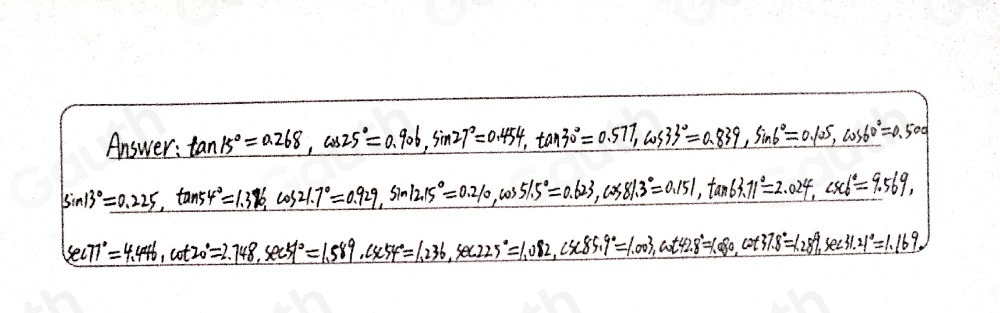 Answer: tan15°=0.268, cos25°=0.906, sin27°=0.454, tan30°=0.577, cos33°=0.839, sin6°=0.105, cos60°=0.500
sin13°=0.225, tan54°=1.376, cos21.7°=0.929, sin12.15°=0.210, cos51.5°=0.623, cos81.3°=0.151, tan63.71°=2.024, csc6°=9.569,
sec77°=4.446, cot20°=2.748, sec51°=1.589, csc54°=1.236, sec225°=1.082, csc85.9°=1.003, cot42.8°=1.080, cot37.8°=1.289, sec31.21°=1.169.